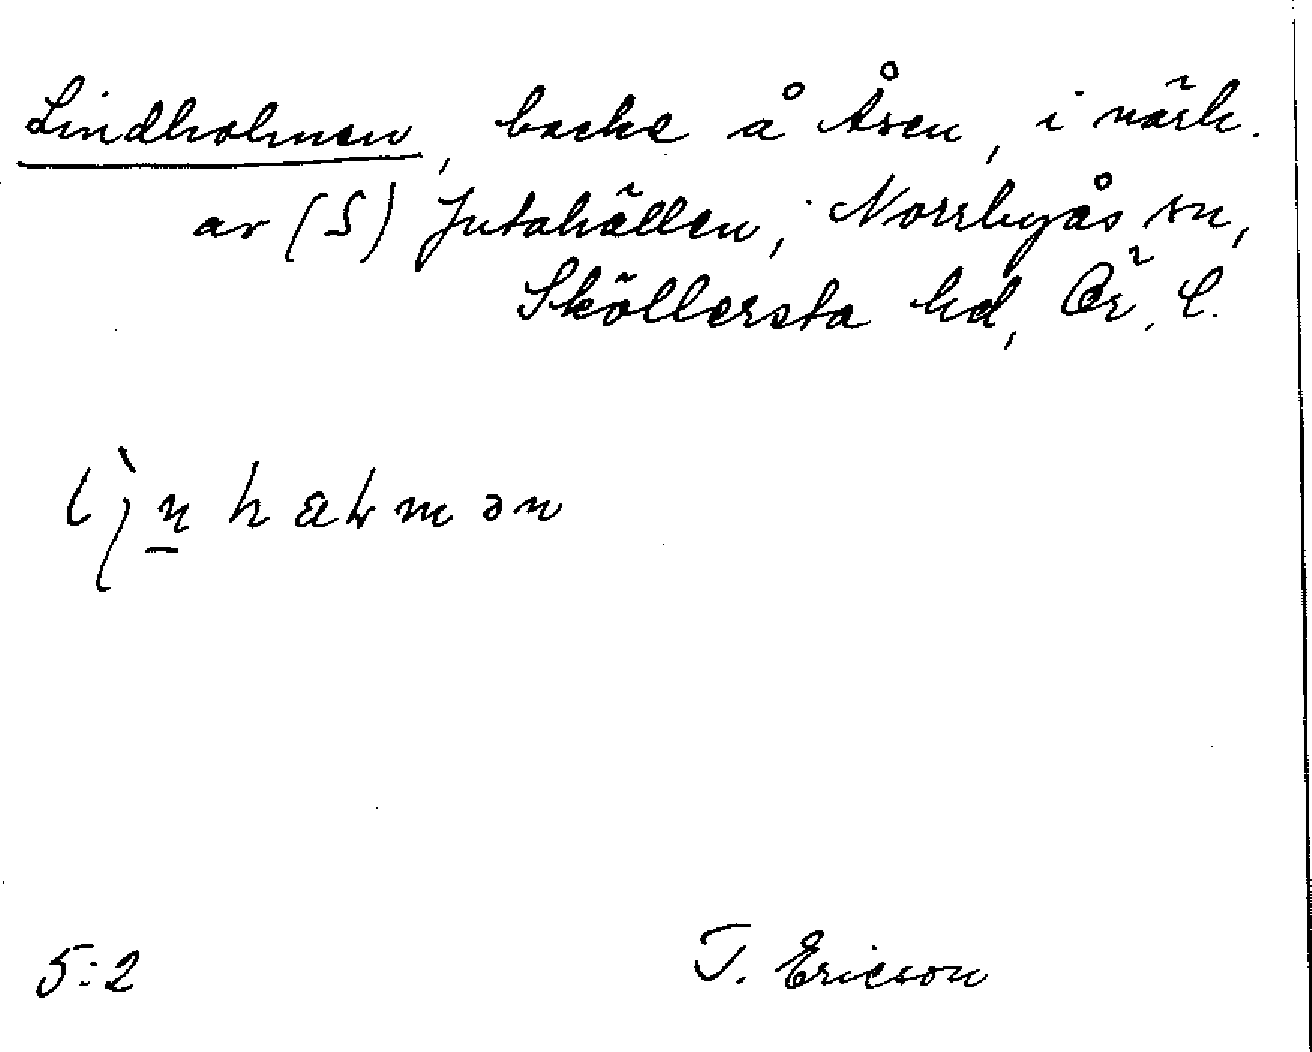 Lindholmen, backe å Åsen, i närh.
av (S) Jutahällen, Norrbyås sn,
Sköllersta hd, Ör. l.
5:2
T. Ericson